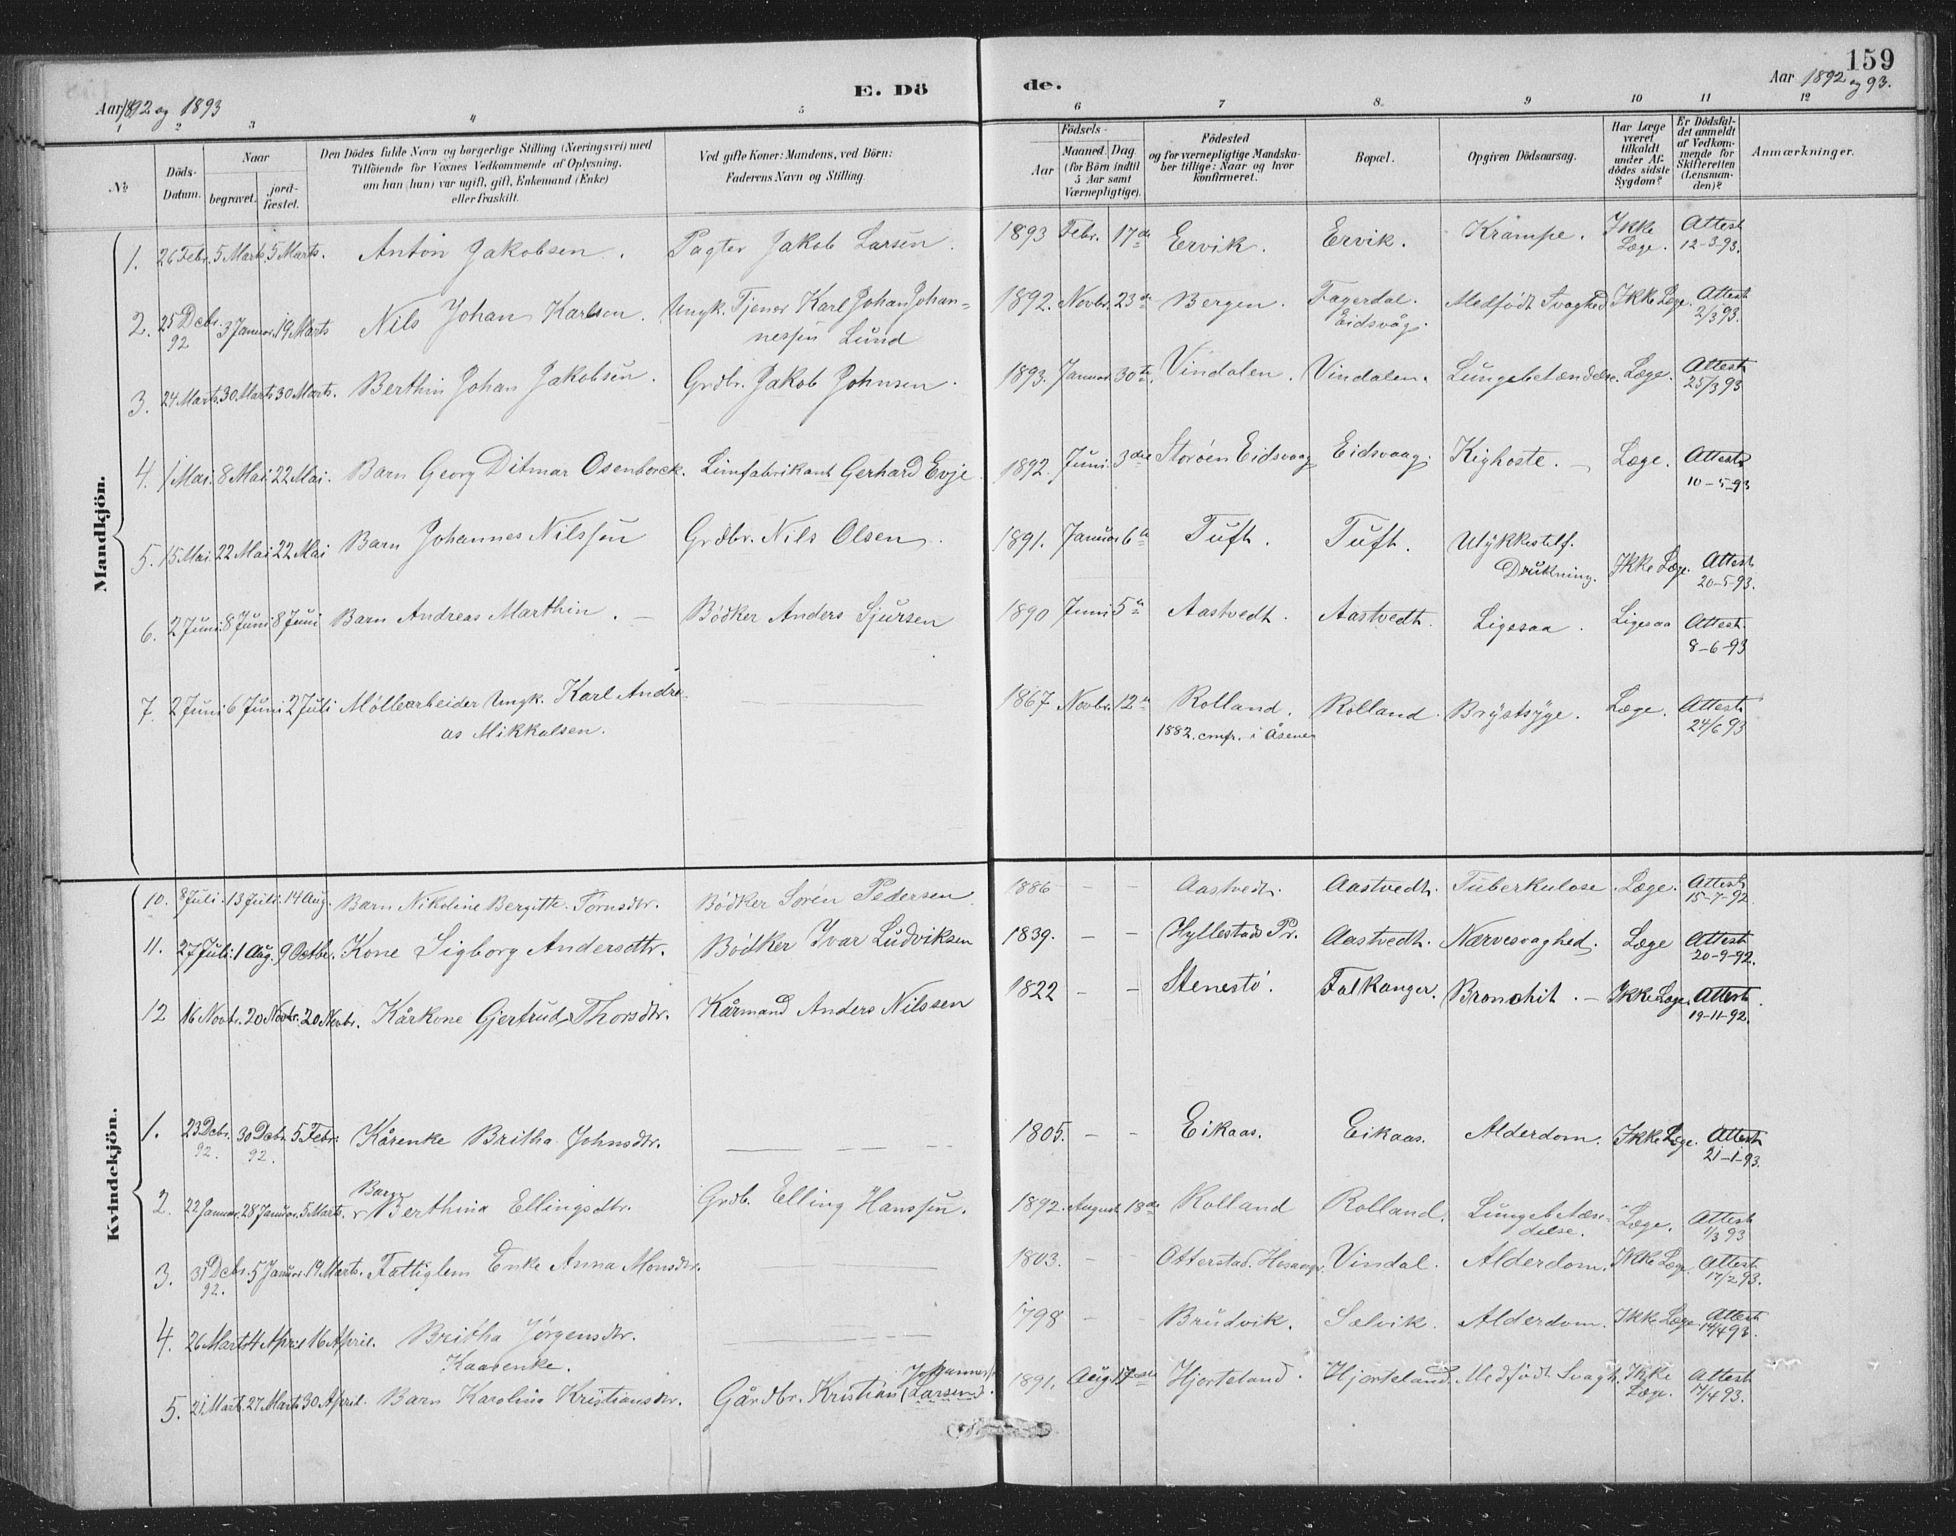 159
Aar 1892 og 1893
E. Dö
de.
Aar 1892 og 93.
1 2 3 4 5 6 7 8. 9 10 11 12
No
Döds-Datum.
Naar
begravet.
jord-fæstet.
Den Dödes fulde Navn og borgerlige Stilling (Næringsvei) med
Tilföiende for Voxnes Vedkommende af Oplysning,
om han (hun) var ugift, gift, Enkemand (Enke)
eller fraskilt.
Ved gifte Koner: Mandens, ved Börn:
Faderens Navn og Stilling.
Födsels-
Aar
Maaned Dag
(for Börn indtil
5 Aar samt
Værnepligtige).
Födested
og for værnepligtige Mandska-
ber tillige: Naar og hvor
konfirmeret.
Bopæl.
Opgiven Dödsaarsag.
Har Læge
været
tilkaldt
under Af-
dödes sidste
Sygdom?
Er Dödsfal-
det anmeldt
af Vedkom-
mende for
Skifteretten
(Lensman-
den)?
Anmærkninger.
Mandkjön.
1. 26 Febr. 5 Marts. 5 Marts. Anton Jakobsen. Pagter Jakob Larsen. 1893 Febr. 17de Ervik. Ervik. Krampe. Ikke Læge. Attest 12-3-93.
2. 25 Dcbr. 92 3 Januar. 19 Marts Nils Johan Karlsen. Ungk. Tjener Karl Johan Johan-
nessen Lund 1892. Novbr. 23de Bergen. Fagerdal. Eidsvåg. Medfødt Svaghed Ikke Læge. Attest 2/3 93.
3. 24 Marts. 30 Marts 30 Marts. Berthin Johan Jakobsen. Grdbr. Jakob Johnsen. 1893. Januar 30te. Vindalen. Vindalen. Lungebetændelse. Læge. Attest 25/3 93
4. 1 Mai. 8 Mai. 22 Mai. Barn Georg Ditmar Osenbrock. Limfabrikant Gerhard Evje. 1892. Juni. 3die Storøen Eidsvaag Eidsvaag. Kighoste. Læge. Attest 10-5-93
5. 15 Mai. 22 Mai 22 Mai Barn Johannes Nilssen Grdbr. Nils Olsen. 1891. Januar 6te Tuft. Tuft. Ulykkestilf. Drukning. Ikke Læge. Attest 20-5-93.
6. 2 Juni. 8 Juni 8 Juni Barn Andreas Marthin. Bødker Anders Sjursen 1890 Juni 5te Aastvedt. Aastvedt. Ligesaa. Ligesaa Attest. 8-6-93
7. 2 Juni 6 Juni 2 Juli Møllearbeider Ungk. Karl Andre-
as Mikkalsen. 1867 Novbr. 12te Rolland. 1882. cmfr. i Åsene Rolland. Brystsyge. Læge. Attest 24/6 93
Kvindekjön.
10. 8 Juli. 13 Juli. 14 Aug. Barn Nikoline Bergitte Sørnsdtr. Bødker Søren Pedersen. 1886 - - Aastvedt. Aastvedt. Tuberkulose. Læge. Attest 15-7-92
11. 27 Juli. 1 Aug. 9 Octbr. Kone Sigborg Andersdttr. Bødker Ivar Ludviksen 1839. - - Hyllestad Pr. Aastvedt. Nærvesvaghed. Læge Attest 20-9-92.
12 16 Novbr. 20 Novbr. 20 Novbr. Kårkone Gjertrud Thorsdtr. Kårmand Anders Nilssen 1822 - - Stenestø. Falkanger. Bronchit. - Ikke Læge. Attest 19-11-92.
1. 23 Dcbr. 92. 30 Dcbr. 92. 5 Febr. Kårenke Britha Johnsdtr. 1805. - - Eikaas. Eikaas. Alderdom. Ikke Læge. Attest 21-1-93.
2. 22 Januar. 28 Januar. 5 Marts. Barn Berthina Ellingsdtr. Grdb. Elling Hanssen. 1892. August 18de Rolland Rolland. Lungebetæn-
delse. Læge. Attest 1/3 93
3. 31 Dcbr. 92. 5 Januar. 19 Marts. Fattiglem Enke Anna Monsdtr. 1803. - - Otterstad. Hosanger Vindal. Alderdom. Ikke Læge. Attest 17/2 93.
4. 26 Marts 4 April 16 April. Britha Jørgensdtr.
Kaarenke. 1798 - - Brudvik. Sælvik. Alderdom. Ikke Læge. Attest 14/4 93.
5. 21 Marts. 27 Marts 30 April. Barn Karolina Kristiansdtr. Gårdbr. Kristian Johannes (Larsen). 1891. Aug. 17de Hjorteland. Hjorteland. Medfødt Svagh. Ikke Læge. Attest 17/4 93.